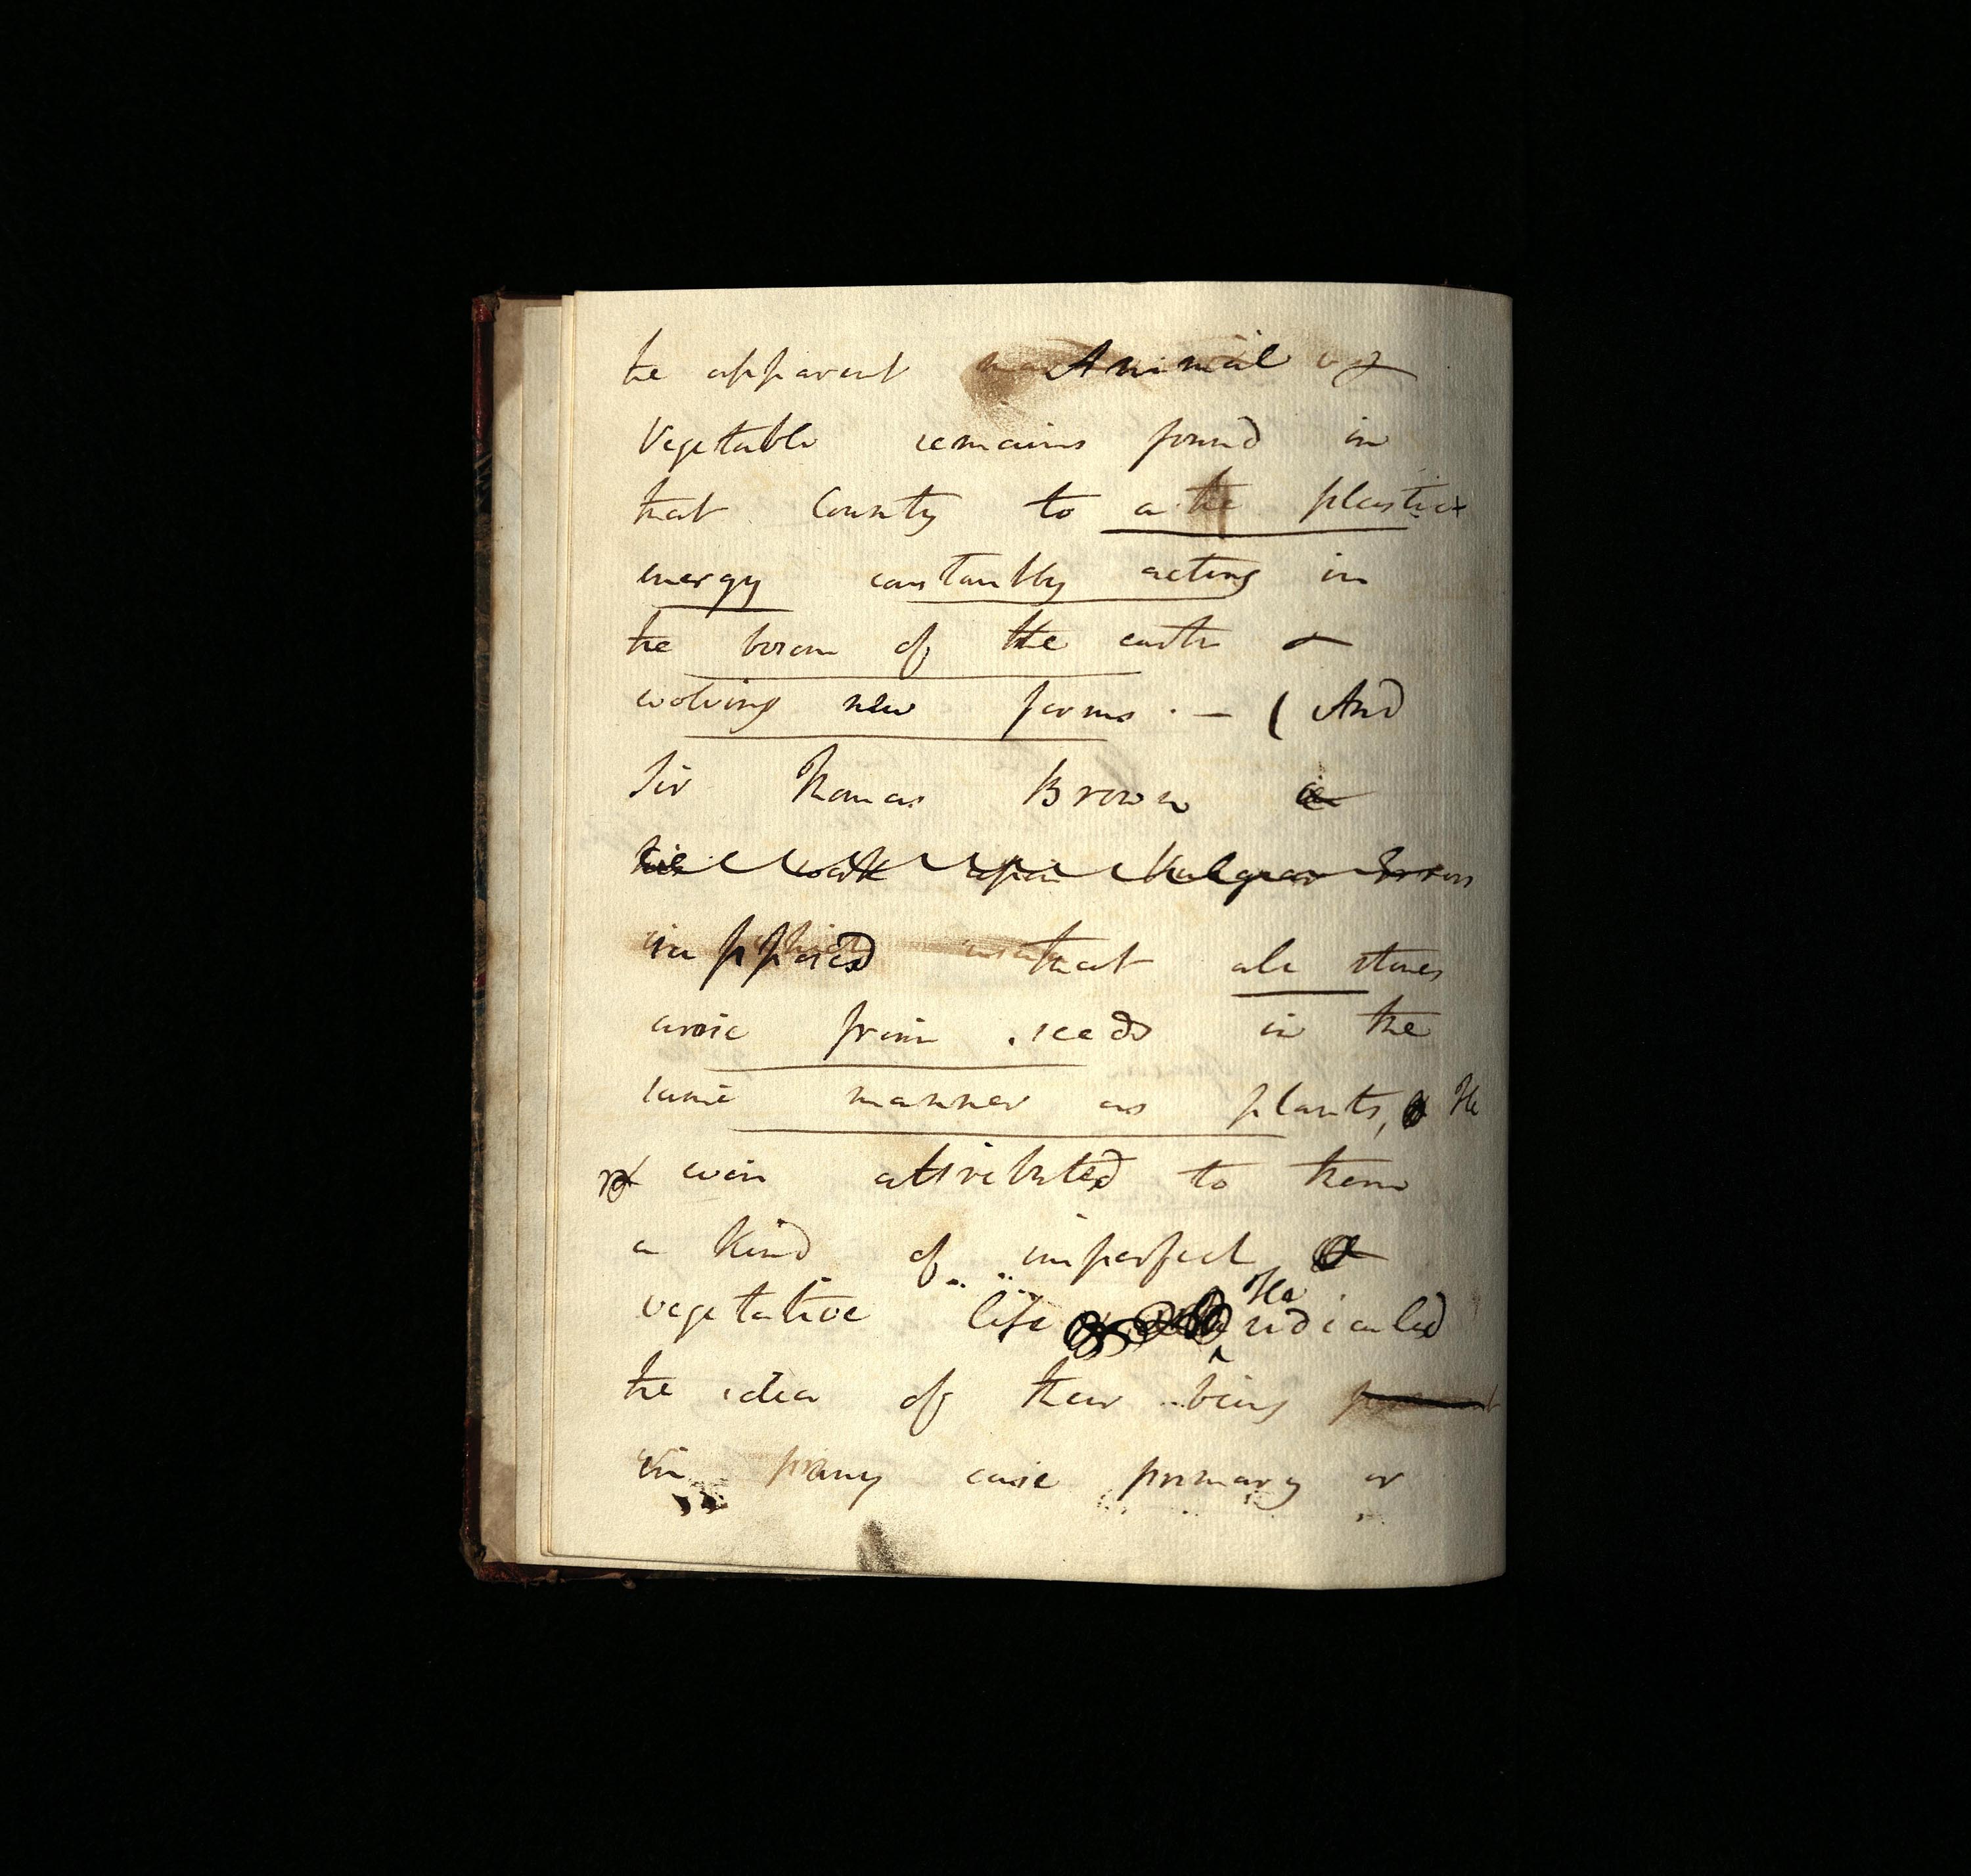 the apparent Animal &
Vegetable remains found in
that County to a plastic
energy constantly acting in
the bosom of the earth &
evolving new forms. — (And
Sir Thomas Brown in
his work upon Vulgar Errors
supposed that all stones
arose from seeds in the
same manner as plants, He
even attributed to them
a kind of imperfect
vegetative life He ridiculed
the idea of their being
in any case primary or